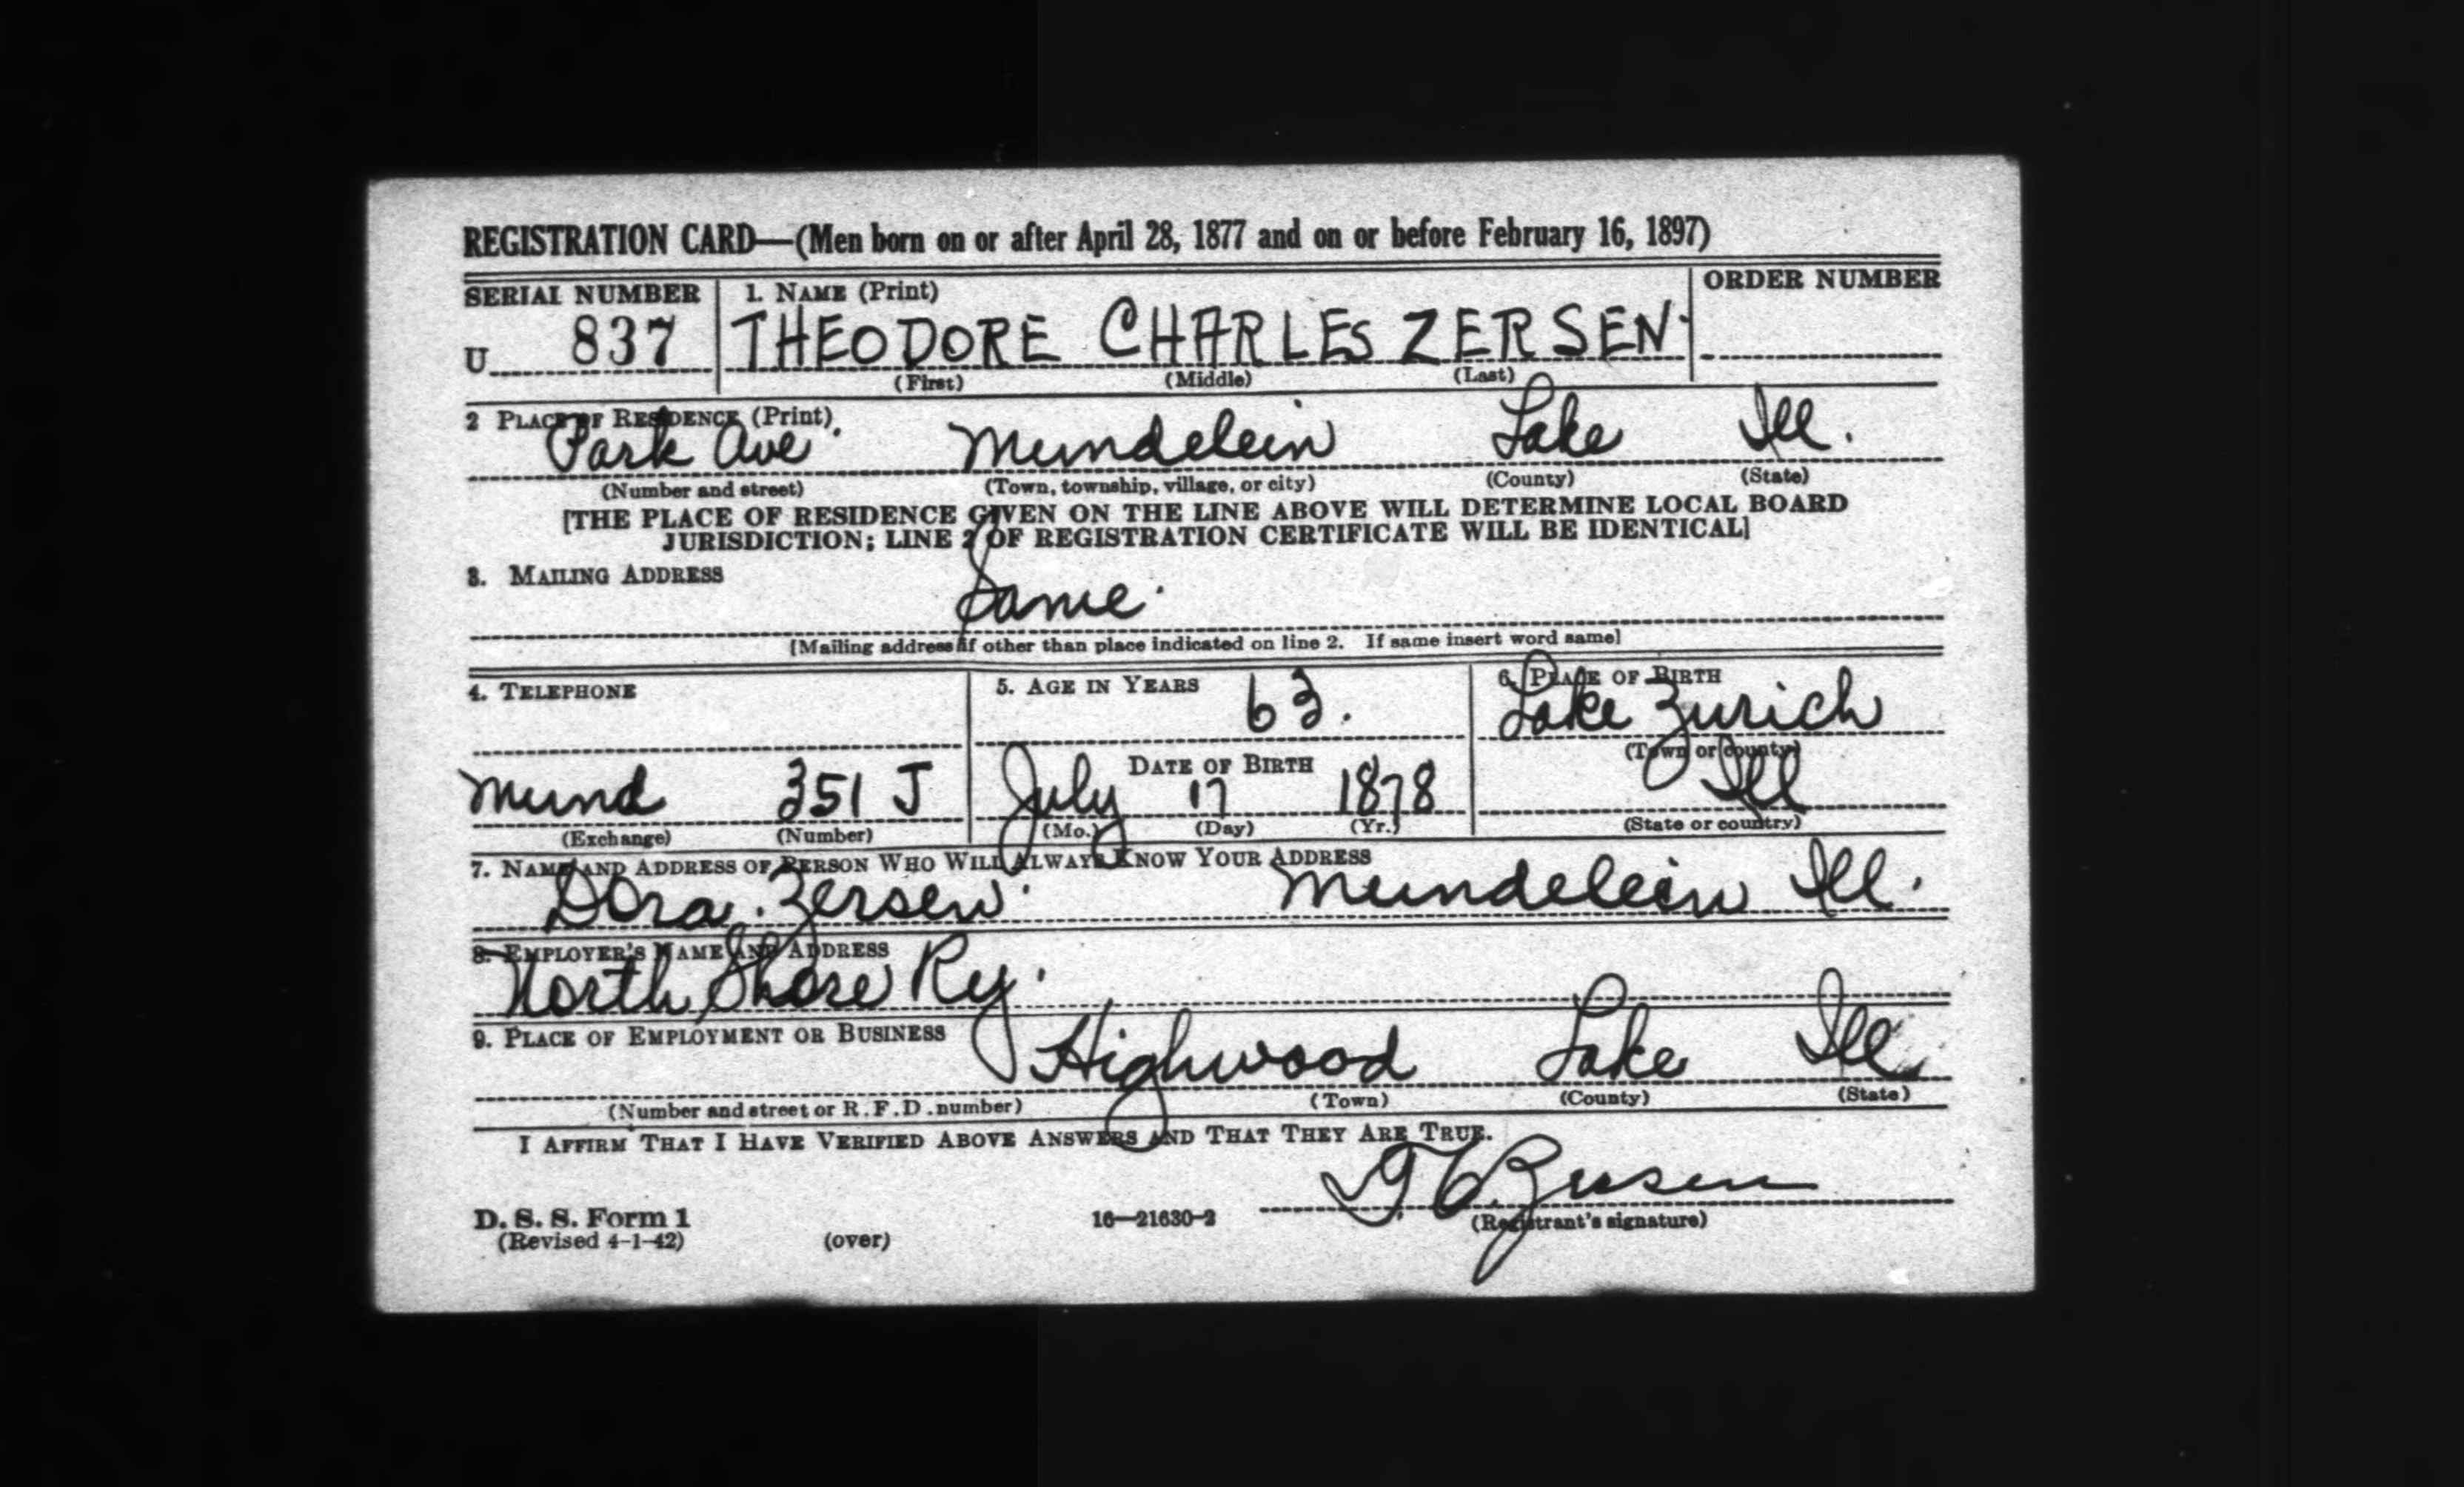 REGISTRATION CARD—(Men born on or after April 28, 1877 and on or before February 16, 1897)
SERIAL NUMBER 1. NAME (Print) ORDER NUMBER
U 837 THEODORE CHARLES ZERSEN
(First) (Middle) (Last)
2 PLACE OF RESIDENCE (Print)
Park Ave Mundelein Lake Ill.
(Number and street) (Town, township, village, or city) (County) (State)
[THE PLACE OF RESIDENCE GIVEN ON THE LINE ABOVE WILL DETERMINE LOCAL BOARD
JURISDICTION; LINE 2 OF REGISTRATION CERTIFICATE WILL BE IDENTICAL]
3. MAILING ADDRESS
Same
[Mailing address if other than place indicated on line 2. If same insert word same]
4. TELEPHONE 5. AGE IN YEARS 6. PLACE OF BIRTH
63. Lake Zurich
DATE OF BIRTH (Town or county)
Mund 351 J July 17 1878 Ill
(Exchange) (Number) (Mo.) (Day) (Yr.) (State or country)
7. NAME AND ADDRESS OF PERSON WHO WILL ALWAYS KNOW YOUR ADDRESS
Dora Zersen Mundelein Ill.
8. EMPLOYER'S NAME AND ADDRESS
North Shore Ry.
9. PLACE OF EMPLOYMENT OR BUSINESS
Highwood Lake Ill
(Number and street or R.F.D. number) (Town) (County) (State)
I AFFIRM THAT I HAVE VERIFIED ABOVE ANSWERS AND THAT THEY ARE TRUE.
T. C. Zersen
D. S. S. Form 1 16—21630-2 (Registrant's signature)
(Revised 4-1-42) (over)